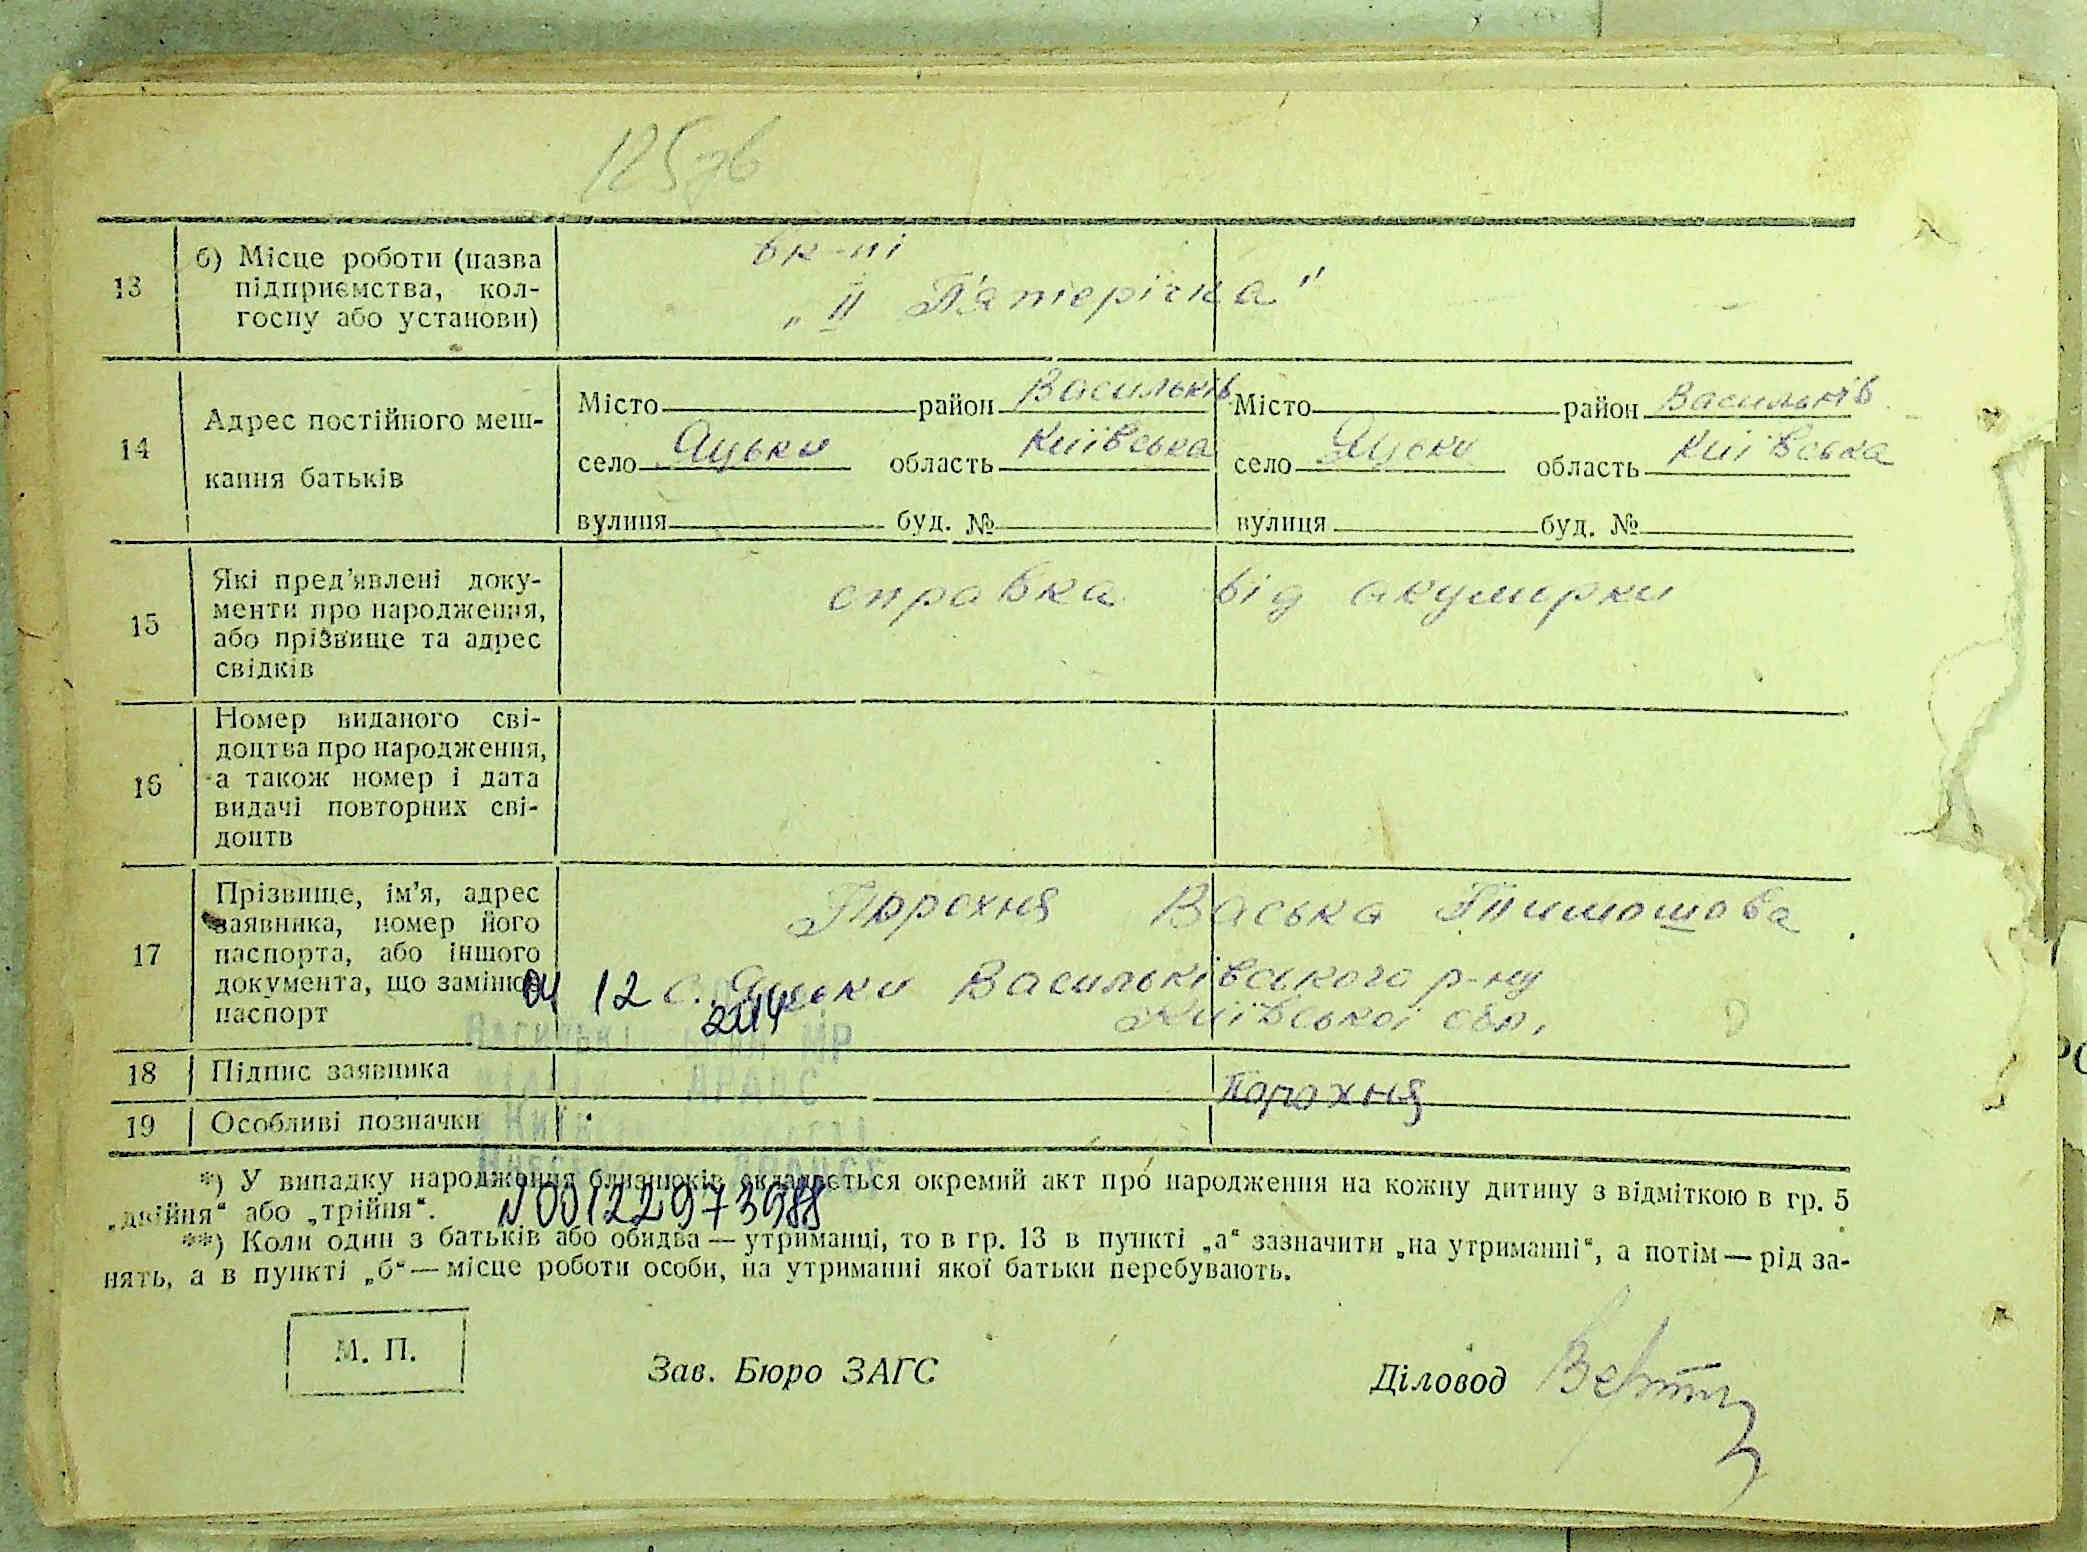 125зв
13
б) Місце роботи (назва
підприємства, кол-
госпу або установи)
вк-пі
„ІІ П'ятерічка"
14
Адрес постійного меш-
кання батьків
Місто район Васильків
село Яцьки область Київська
вулиця буд. №
Місто район Васильків
село Яцьки область Київська
вулиця буд. №
15
Які пред'явлені доку-
менти про народження,
або прізвище та адрес
свідків
справка від акушерки
16
Номер виданого сві-
доцтва про народження,
а також номер і дата
видачі повторних сві-
доцтв
17
Прізвище, ім'я, адрес
заявника, номер його
паспорта, або іншого
документа, що замінює
паспорт
Порохня Васька Тимошова
с. Яцьки Васильківського р-ну
Київської обл.
04 12
18
Підпис заявника
Порохня
19
Особливі позначки
*) У випадку народження близнюків складається окремий акт про народження на кожну дитину з відміткою в гр. 5
„двійня“ або „трійня“.
N 00122973988
**) Коли один з батьків або обидва — утриманці, то в гр. 13 в пункті „а“ зазначити „на утриманні“, а потім — рід за-
нять, а в пункті „б“ — місце роботи особи, на утриманні якої батьки перебувають.
М. П.
Зав. Бюро ЗАГС
Діловод